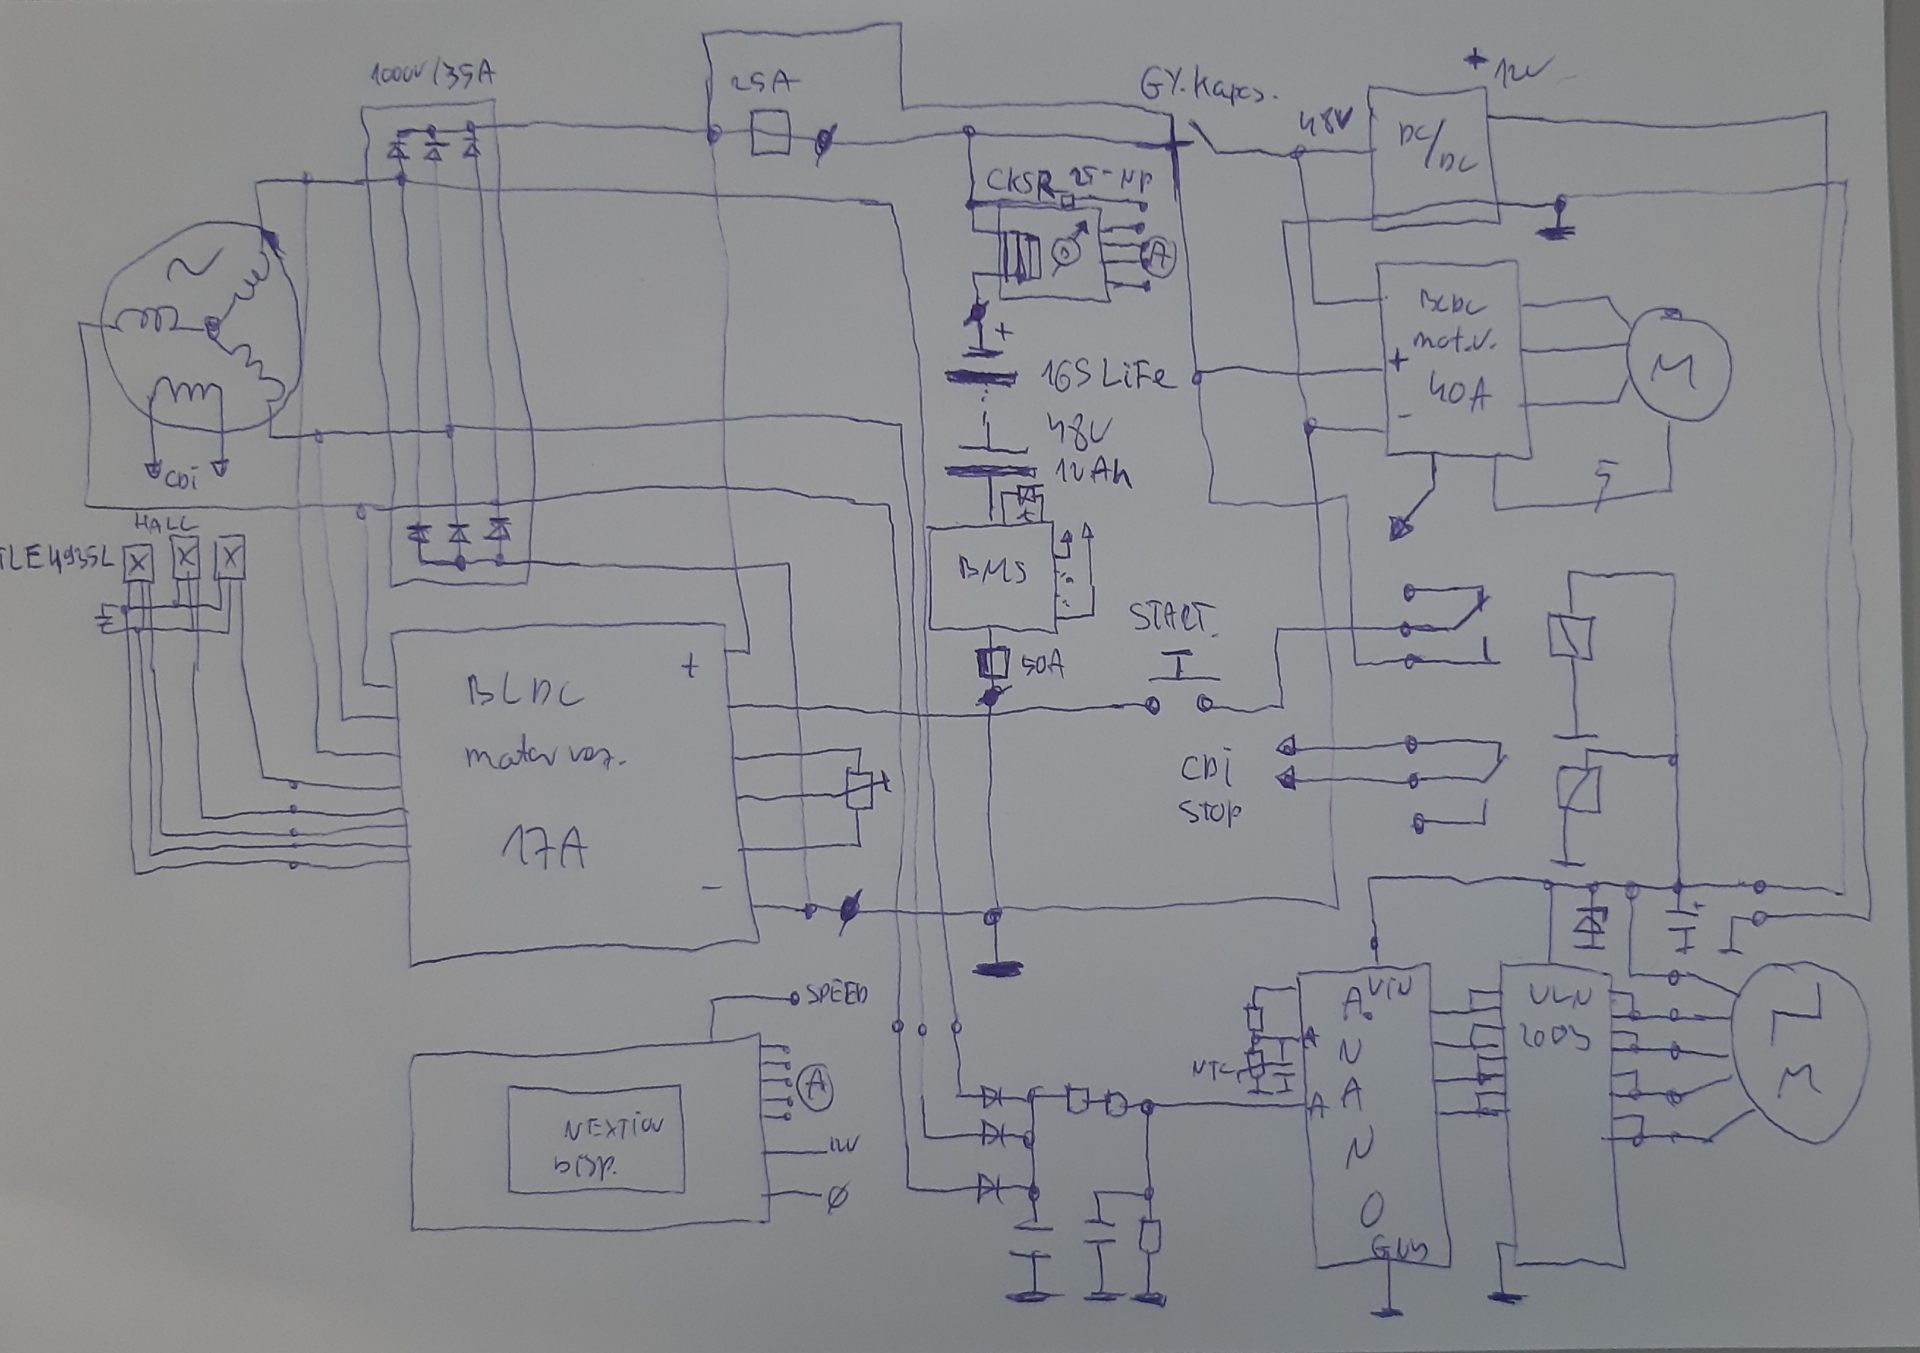 1000V/35A
25A
GY.Kapcs.
+12V
48V
DC/DC
CKSR 25-NP
A
+
16S LiFe
48V
12Ah
BLDC
mot.v.
+
40A
-
M
5
CDi
HALL
TLE4935L
BMS
50A
START
BLDC
+
motor vez.
17A
-
CDi
STOP
SPEED
NEXTION
DISP.
A
12V
Ø
NTC
VIN
A.
N
A
N
O
GND
A
A
ULN
2003
M